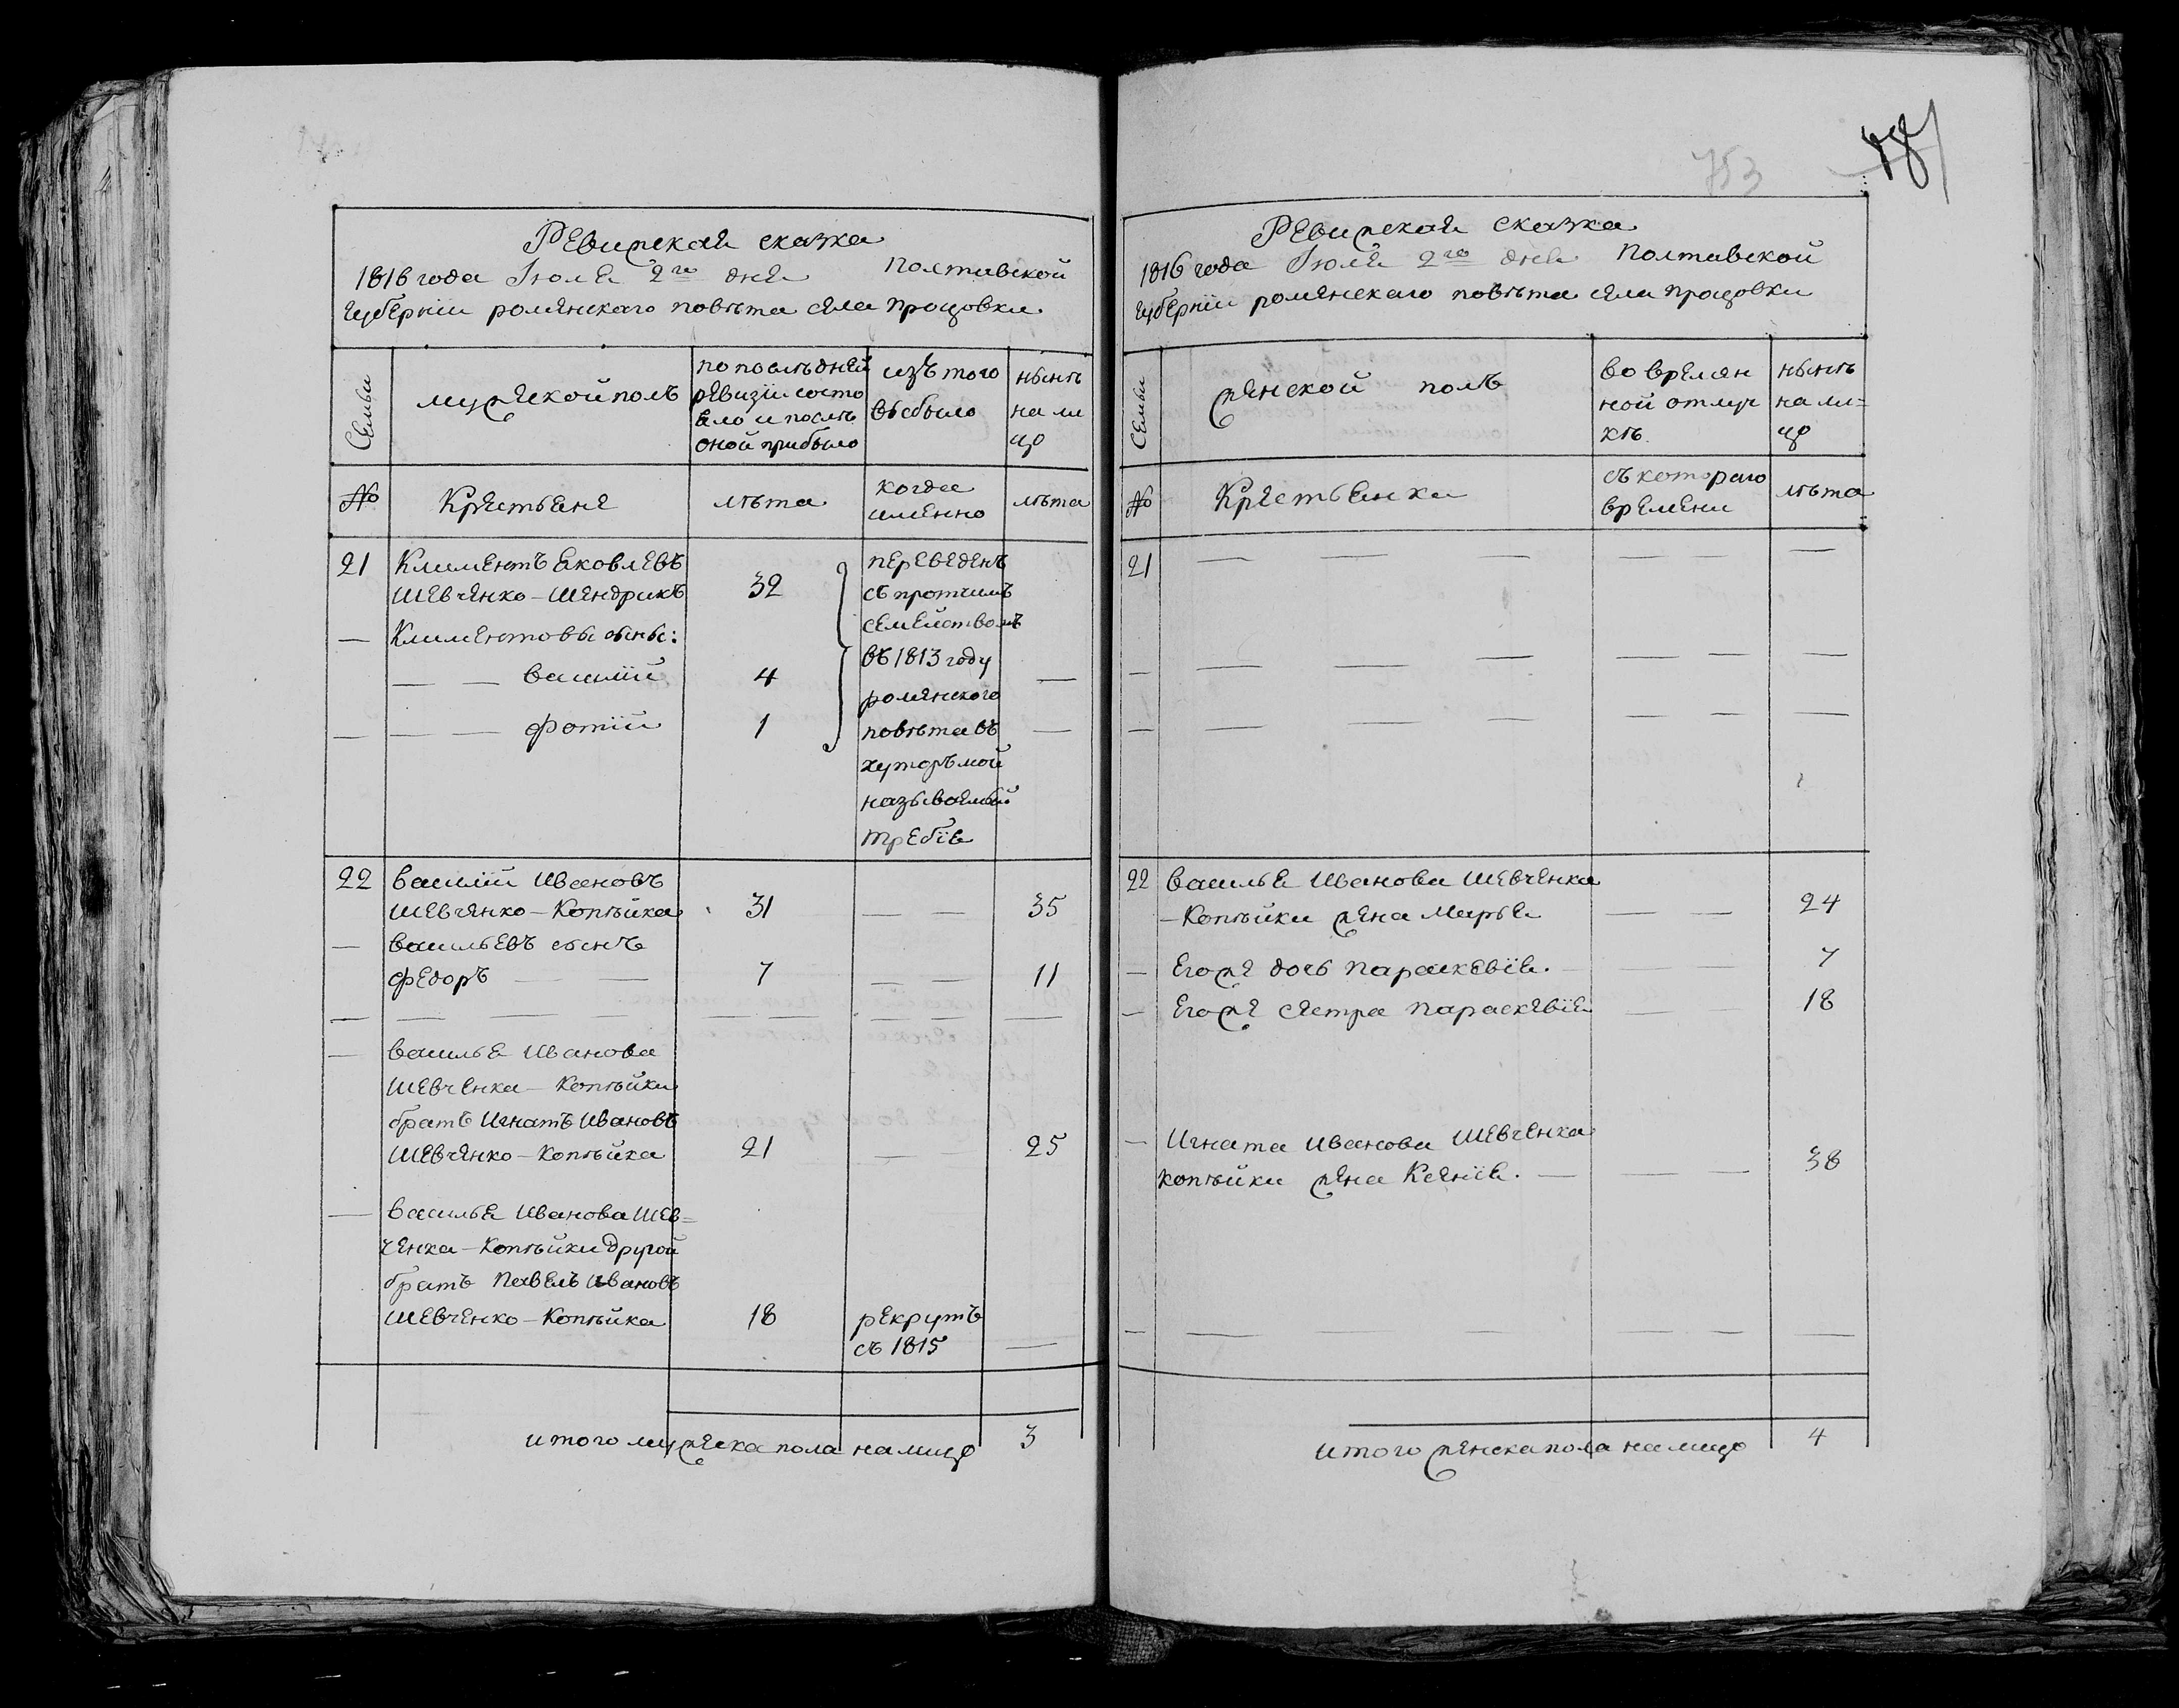 Ревижская сказка
1816 года Іюля 2го дня Полтавской
губерніи роменскаго повѣта села процовки
Семьи
мужеской полъ
по послѣдней
ревизіи состо
яло и послѣ
оной прибыло
изъ того
выбыло
нынѣ
на ли
цо
№
Крестьяне
лѣта
когда
именно
лѣта
21
Климентъ Яковлевъ
Шевченко - Шендрикъ
32
— Климентовы сыны:
— — василій
4
—
— — — фотій
1
—
переведенъ
съ протчимъ
семействомъ
въ 1813 году
роменского
повѣта въ
хуторъ мой
называемый
требія
22
василій Ивановъ
Шевченко - Копѣйка
31
— —
35
— васильевъ сынъ
федоръ — —
7
— —
11
— — — — — — — — — —
— василья Иванова
Шевченка - Копѣйки
братъ Игнатъ Ивановъ
Шевченко - Копѣйка
21
— —
25
— василья Иванова Шев=
ченка - Копѣйки другой
братъ Павелъ Ивановъ
Шевченко - Копѣйка
18
рекрутъ
съ 1815
—
итого мужеска пола на лицо
3
753
Ревижская сказка
1816 года Іюля 2го дня Полтавской
губерніи роменскаго повѣта села процовки
Семьи
женской полъ
во времян
ной отлуч
кѣ
нынѣ
на ли=
цо
№
Крестьянки
съ котораго
времени
лѣта
21
— — — — — —
— — — — — — —
— — — — — — —
22
василья Иванова Шевченка
- Копѣйки жена Марья
— —
24
— Егоже дочь параскевія. — — —
7
— Егоже сестра параскевія — —
18
— Игната Иванова Шевченка
копѣйки жена Ксенія. — — —
38
— — — — — — —
итого женска пола на лицо
4